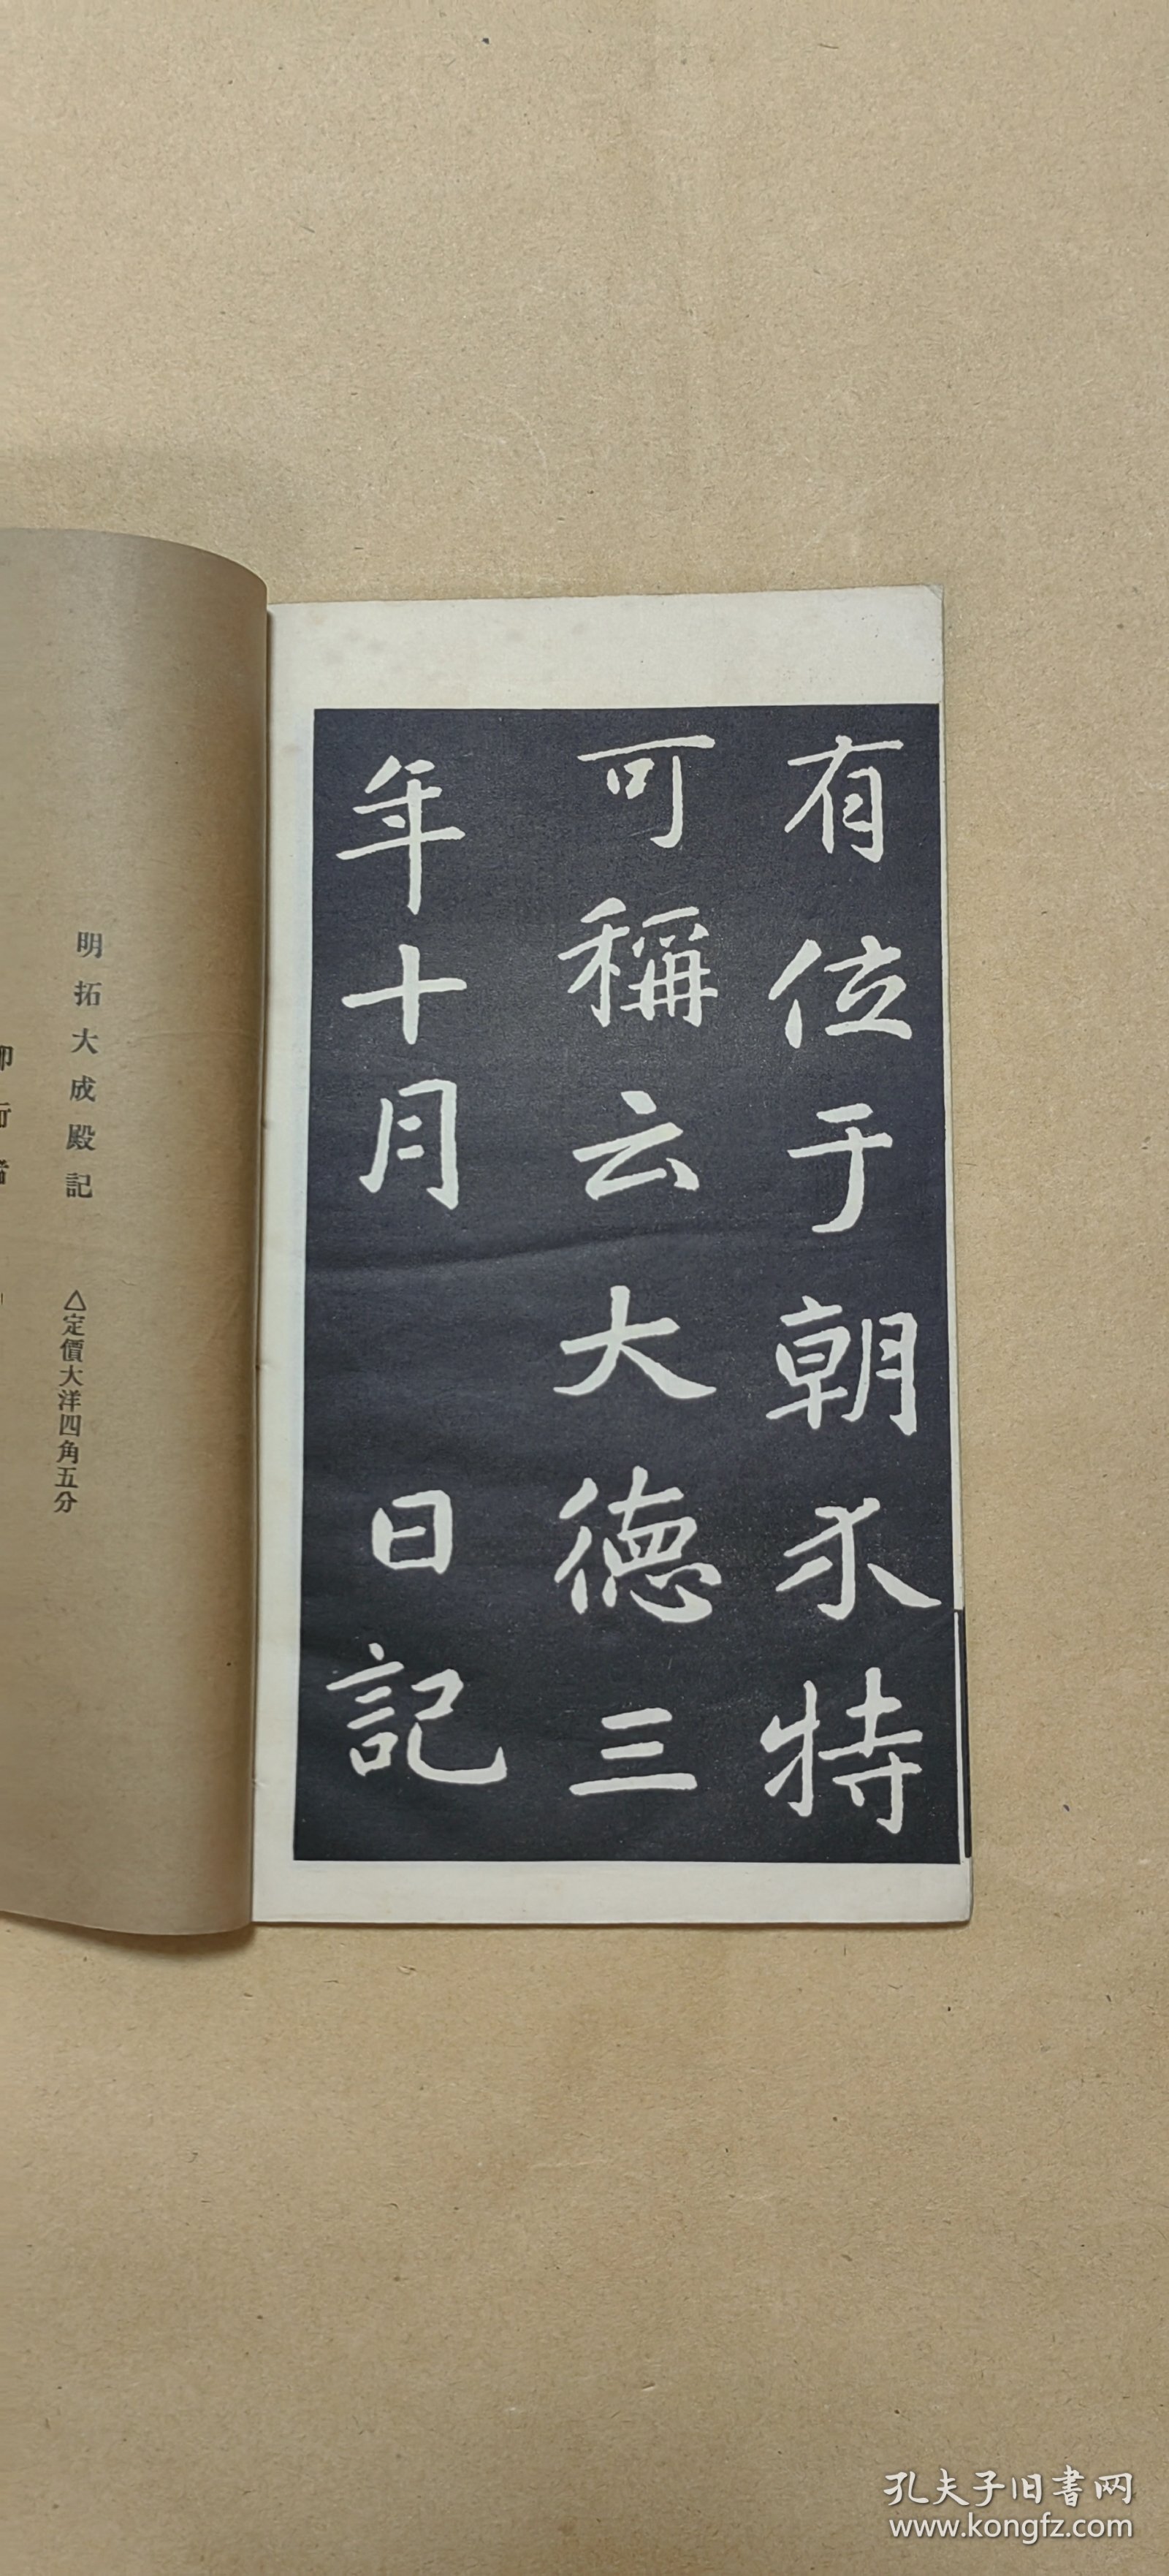 有位于朝不特
可稱云大德三
年十月 日記
明拓大成殿記 △定價大洋四角五分
孔夫子旧书网
www.kongfz.com